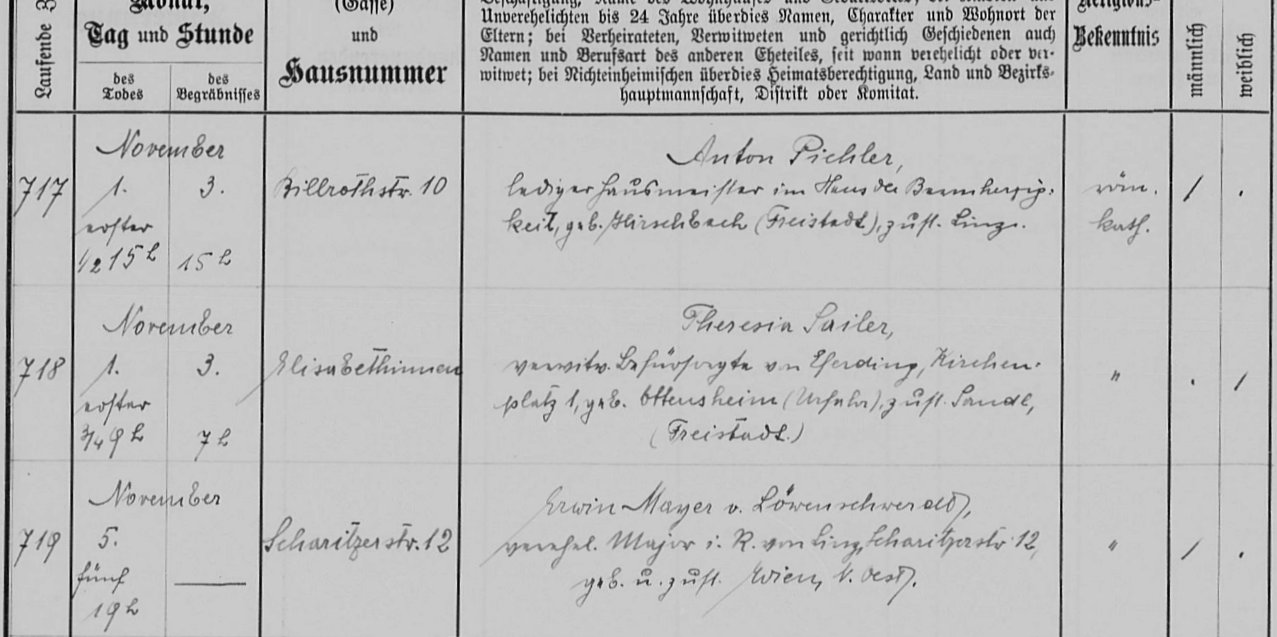 Laufende
Tag und Stunde
des Todes
des Begräbnisses
(Gasse)
und
Hausnummer
Unverehelichten bis 24 Jahre überdies Namen, Charakter und Wohnort der
Eltern; bei Verheirateten, Verwitweten und gerichtlich Geschiedenen auch
Namen und Berufsart des anderen Eheteiles, seit wann verehelicht oder ver-
witwet; bei Nichteinheimischen überdies Heimatsberechtigung, Land und Bezirks-
hauptmannschaft, Distrikt oder Komitat.
Religions-
Bekenntnis
männlich
weiblich
November
Anton Pichler,
717 1. 3. Billrothstr. 10 lediger Hausmeister im Haus der Barmherzig-
erster keit, geb. Hirschbach (Freistadt), zust. Linz.
röm.
kath.
1/2 15 h 15 h
November
Theresia Sailer,
718 1. 3. Elisabethinnen verwitw. Befürsorgte von Eferding, Kirchen-
erster platz 1, geb. Ottensheim (Urfahr), zust. Sandl, "
3/4 9 h 7 h (Freistadt.)
November
Erwin Mayer v. Löwenschwerdt,
719 5. Scharitzerstr. 12 verehel. Major i. R. von Linz, Scharitzerstr. 12, "
fünf — geb. u. zust. Wien, N. Oest.
19 h